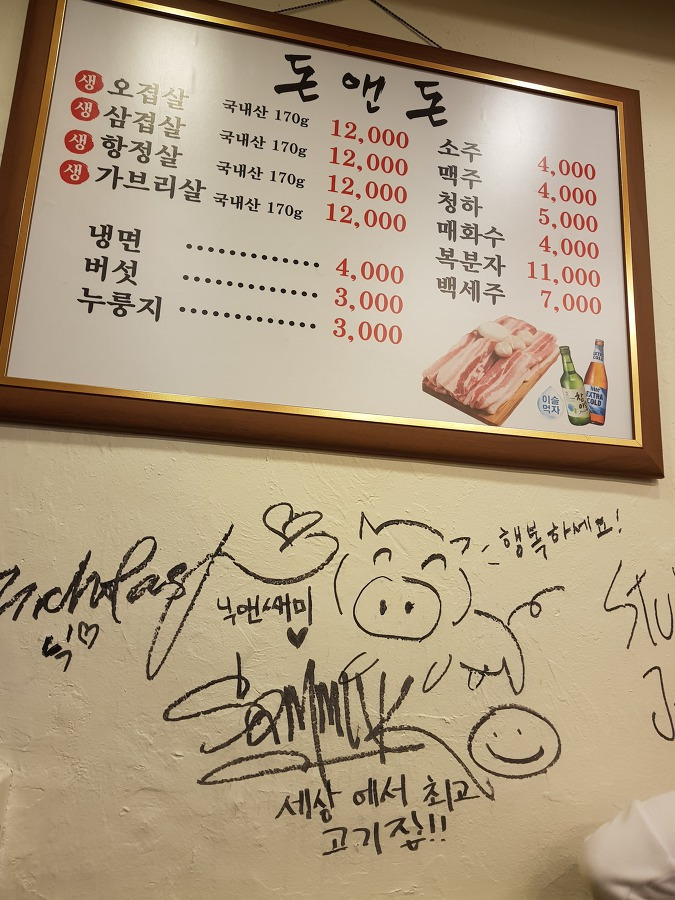 돈 앤 돈
생 오겹살 국내산 170g 12,000
생 삼겹살 국내산 170g 12,000
생 항정살 국내산 170g 12,000
생 가브리살 국내산 170g 12,000
냉면 ············ 4,000
버섯 ············ 3,000
누룽지 ············ 3,000
소주 4,000
맥주 4,000
청하 5,000
매화수 4,000
복분자 11,000
백세주 7,000
이슬
먹자
EXTRA
COLD
행복하세요!
Nicholas
닉♡
닉앤쌔미
♥
SAMMY
세상에서 최고
고기집!!